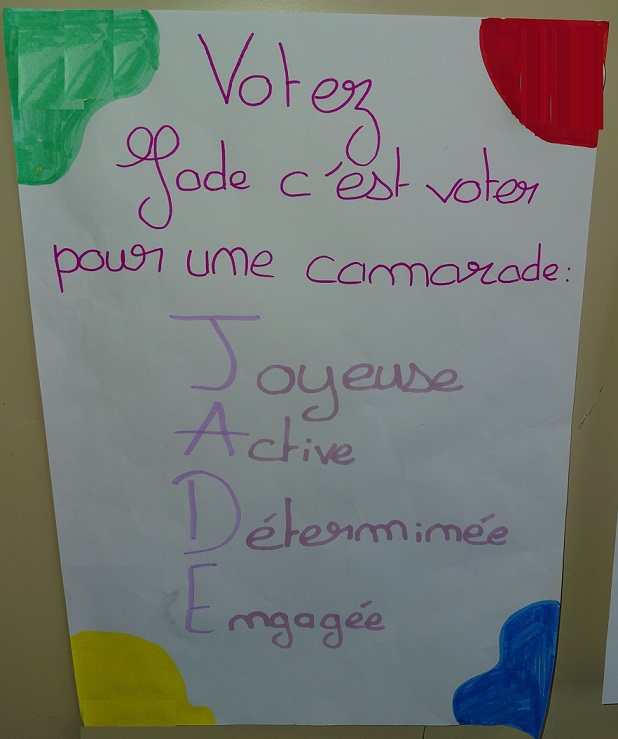 Votez
Jade c'est voter
pour une camarade:
Joyeuse
Active
Déterminée
Engagée